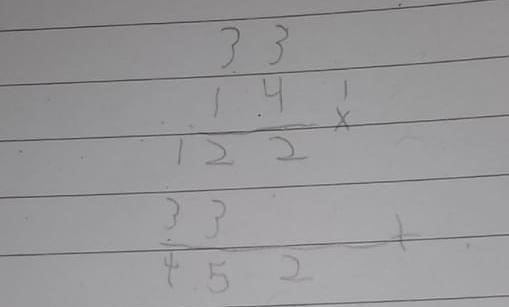 33
14 1
×
122
33
+
452